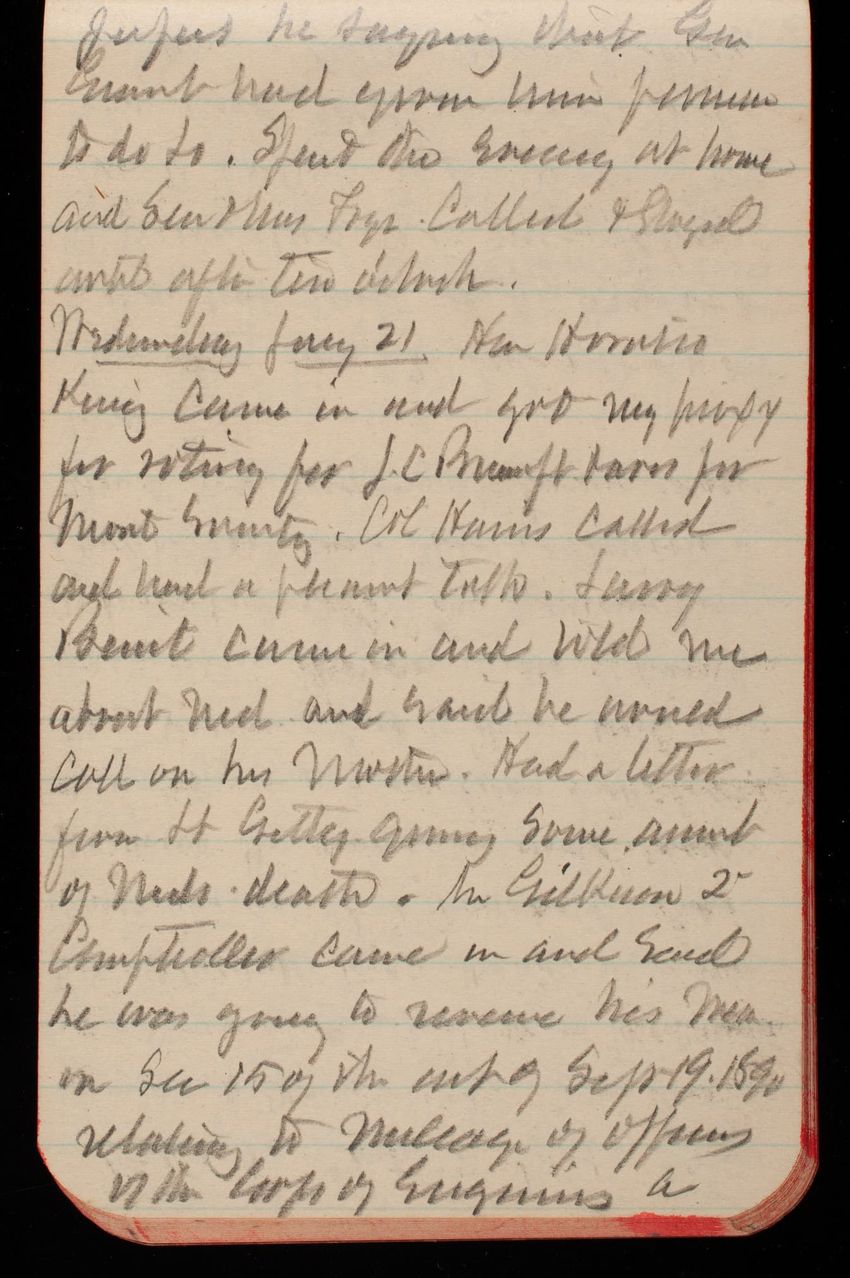 papers he saying that Gen
Grant had given him permission
to do so. Spent the Evening at home
and Gen & Mrs Fry Called & Stayed
until after ten o'clock.
Wednesday Jany 21 Hon Horatio
King Came in and got my proxy
for voting for J.C Bancroft Davis for
Mont Society. Col Harris Called
and had a pleasant talk. Larry
Benét came in and told me
about Ned and said he would
Call on his Mother. Had a letter
from Lt Getty giving some account
of Neds death. Mr Gilkeson 2d
Comptroller came in and said
he was going to reverse his
on Sec 15 of the act of Sept 19. 1890
relating to Mileage of officers
of the Corps of Engineers a